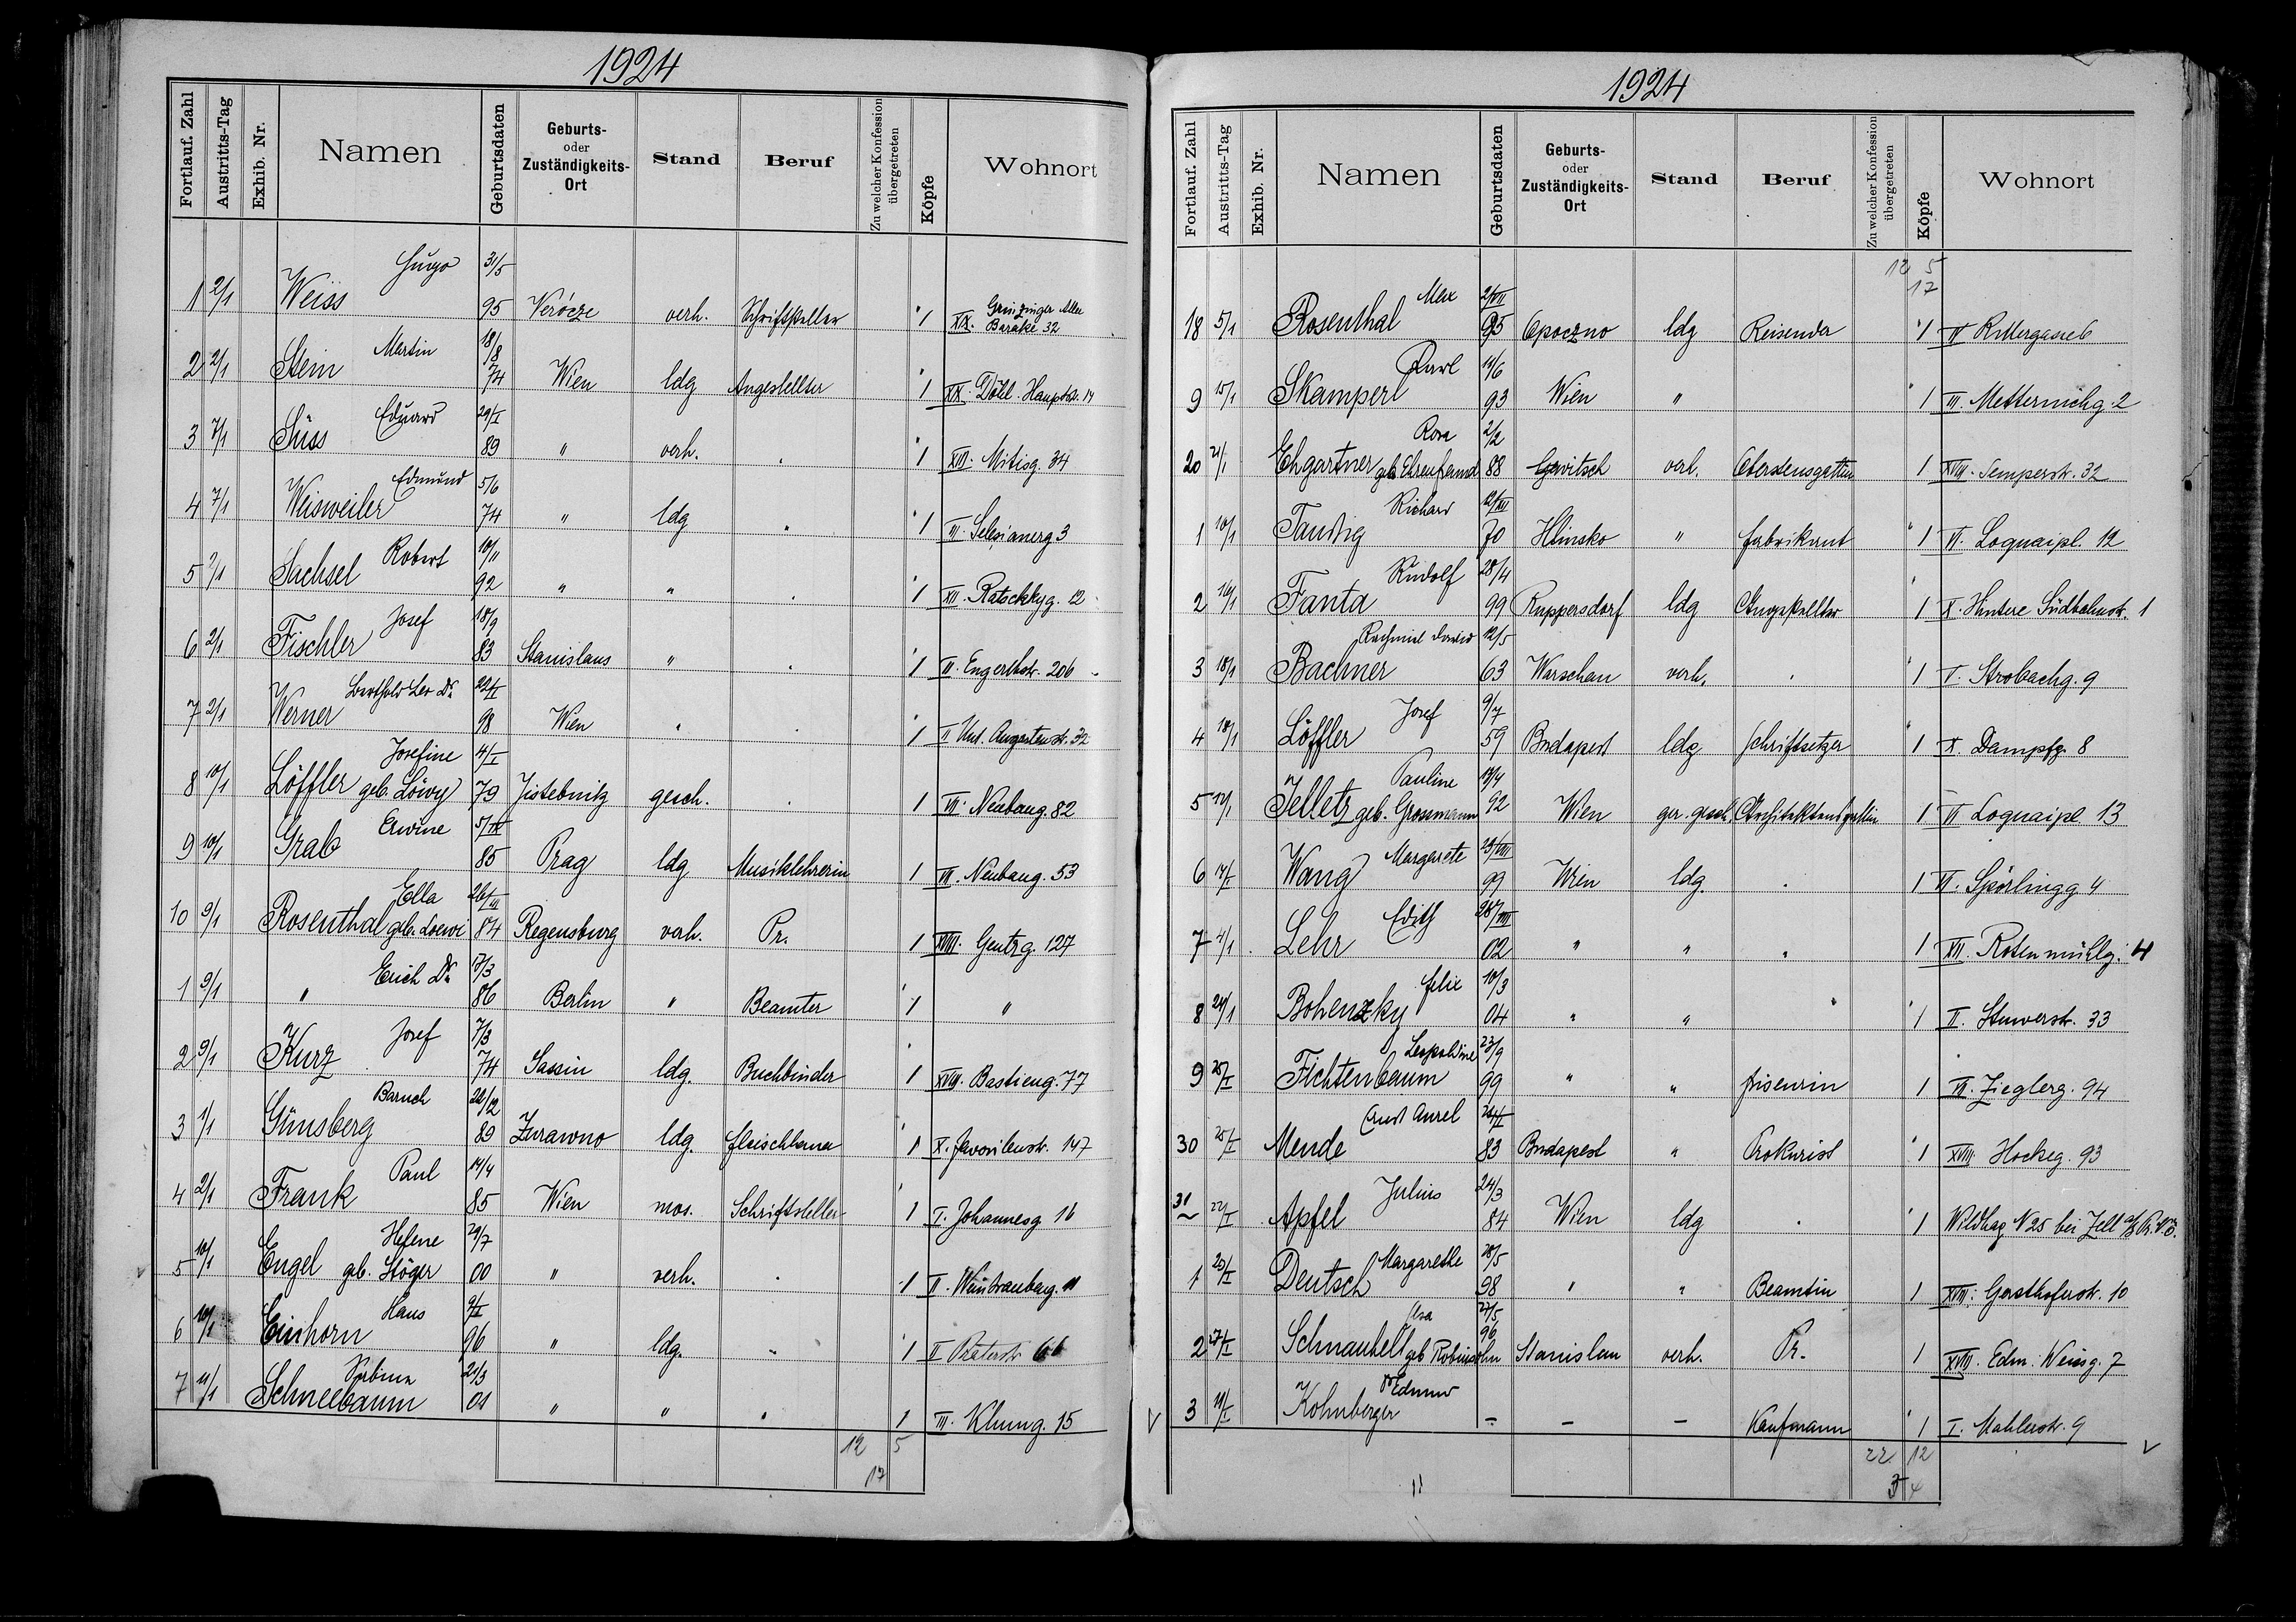 1924
Fortlauf. Zahl Austritts-Tag Exhib. Nr. Namen Geburtsdaten Geburts- oder Zuständigkeits-Ort Stand Beruf Zu welcher Konfession übergetreten Köpfe Wohnort
Hugo 31/5
1 2/1 Weiss 95 Verőcze verh. Schriftsteller 1 XIX. Grinzinger Allee Barake 32
Martin 18/8
2 2/1 Stein 74 Wien ldg Angestellter 1 XIX. Döbl. Hauptstr. 14
Eduard 29/I
3 7/1 Süss 89 " verh. . 1 XIII. Mitisg. 34
Edmund 5/6
4 7/1 Weisweiler 74 " ldg . 1 III. Salesianerg 3
Robert 10/11
5 /1 Sachsel 92 " " . 1 XII. Ratschkyg. 12
Josef 18/9
6 2/1 Fischler 83 Stanislaus " . 1 II. Engerthstr. 206
Berthold Leo Dr.
7 2/1 Werner 98 Wien . . 1 II Unt. Augartenstr. 32
Josefine 4/I
8 10/1 Löffler geb. Löwy 79 Jistebnitz gesch. . 1 VII. Neubaug. 82
Erwine 5/IX
9 10/1 Grab 85 Prag ldg Musiklehrerin 1 VII. Neubaug. 53
Ella 26/III
10 9/1 Rosenthal geb. Loewi 84 Regensburg verh. Pr. 1 XVIII. Gentzg. 127
Erich Dr. 17/3
1 9/1 " 86 Berlin " Beamter 1 "
Josef 7/3
2 9/1 Kurz 74 Sassin ldg. Buchbinder 1 XVIII. Bastieng. 77
Baruch 22/12
3 1/1 Günsberg 89 Zurawno ldg. Fleischhauer 1 X. Favoritenstr. 147
Paul 14/4
4 2/1 Frank 85 Wien mos. Schriftsteller 1 I. Johannesg 16
Helene 29/7
5 10/1 Engel geb. Stöger 00 " verh. . 1 II. Weintraubeng. 11
Hans 9/I
6 10/1 Einhorn 96 " ldg. . 1 II Praterstr 66
Sabina 21/3
7 11/1 Schneebaum 01 " " " 1 III. Klimg. 15
12 5
17
1924
Fortlauf. Zahl Austritts-Tag Exhib. Nr. Namen Geburtsdaten Geburts- oder Zuständigkeits-Ort Stand Beruf Zu welcher Konfession übergetreten Köpfe Wohnort
12 5
17
Max 2/VII
18 5/1 Rosenthal 95 Opoczno ldg Reisender 1 II Rittergasse 6
Karl 11/6
9 15/1 Skamperl 93 Wien " 1 III. Metternichg. 2
Rosa 2/2
20 21/1 Ehgartner geb. Ehrenfreund 88 verh. Oberstensgattin 1 XVIII. Semperstr. 32
Richard 12/XII
1 10/1 Taussig 70 Hlinsko " Fabrikant 1 VI. Loquaipl. 12
Rudolf 28/4
2 16/1 Fanta 99 Ruppersdorf ldg Angestellter 1 X. Hintere Südbahnstr. 1
Rachmiel David 12/5
3 18/1 Bachner 63 Warschau verh. . 1 V. Strobachg. 9
Josef 9/7
4 18/1 Löffler 59 Budapest ldg Schriftsetzer 1 X. Dampfg. 8
Pauline 17/4
5 12/1 Jelletz geb. Grossmann 92 Wien ger. gesch. Architektensgattin 1 VI Loquaipl 13
Margarete 23/VIII
6 14/I Wang 99 Wien ldg. . 1 VI. Spörlingg 4
Edith 28/VIII
7 4/1 Lehr 02 " " . 1 XII. Rosenmühlg. 4
Felix 10/3
8 24/1 Bohenzky 04 " " " 1 II. Stuwerstr. 33
Leopoldine 23/9
9 25/I Fichtenbaum 99 " " Friseurin 1 VII. Zieglerg. 94
Ernst Aurel
30 25/I Mende 83 Budapest " Prokurist 1 XVIII. Hockeg. 93
Julius 24/3
31 22/I Apfel 84 Wien ldg . 1 Wildhag N 25 bei Zell
Margarethe 28/5
1 29/I Deutsch 98 " " Beamtin 1 XVIII. Gersthoferstr. 10
27/5
2 27/I Schnaubelt geb Robinsohn 96 Stanislau verh. Pr. 1 XVIII. Edm. Weissg. 7
Dr Edmund
3 11/I Kohnberger – – – Kaufmann 1 I. Mahlerstr. 9
22 12
34